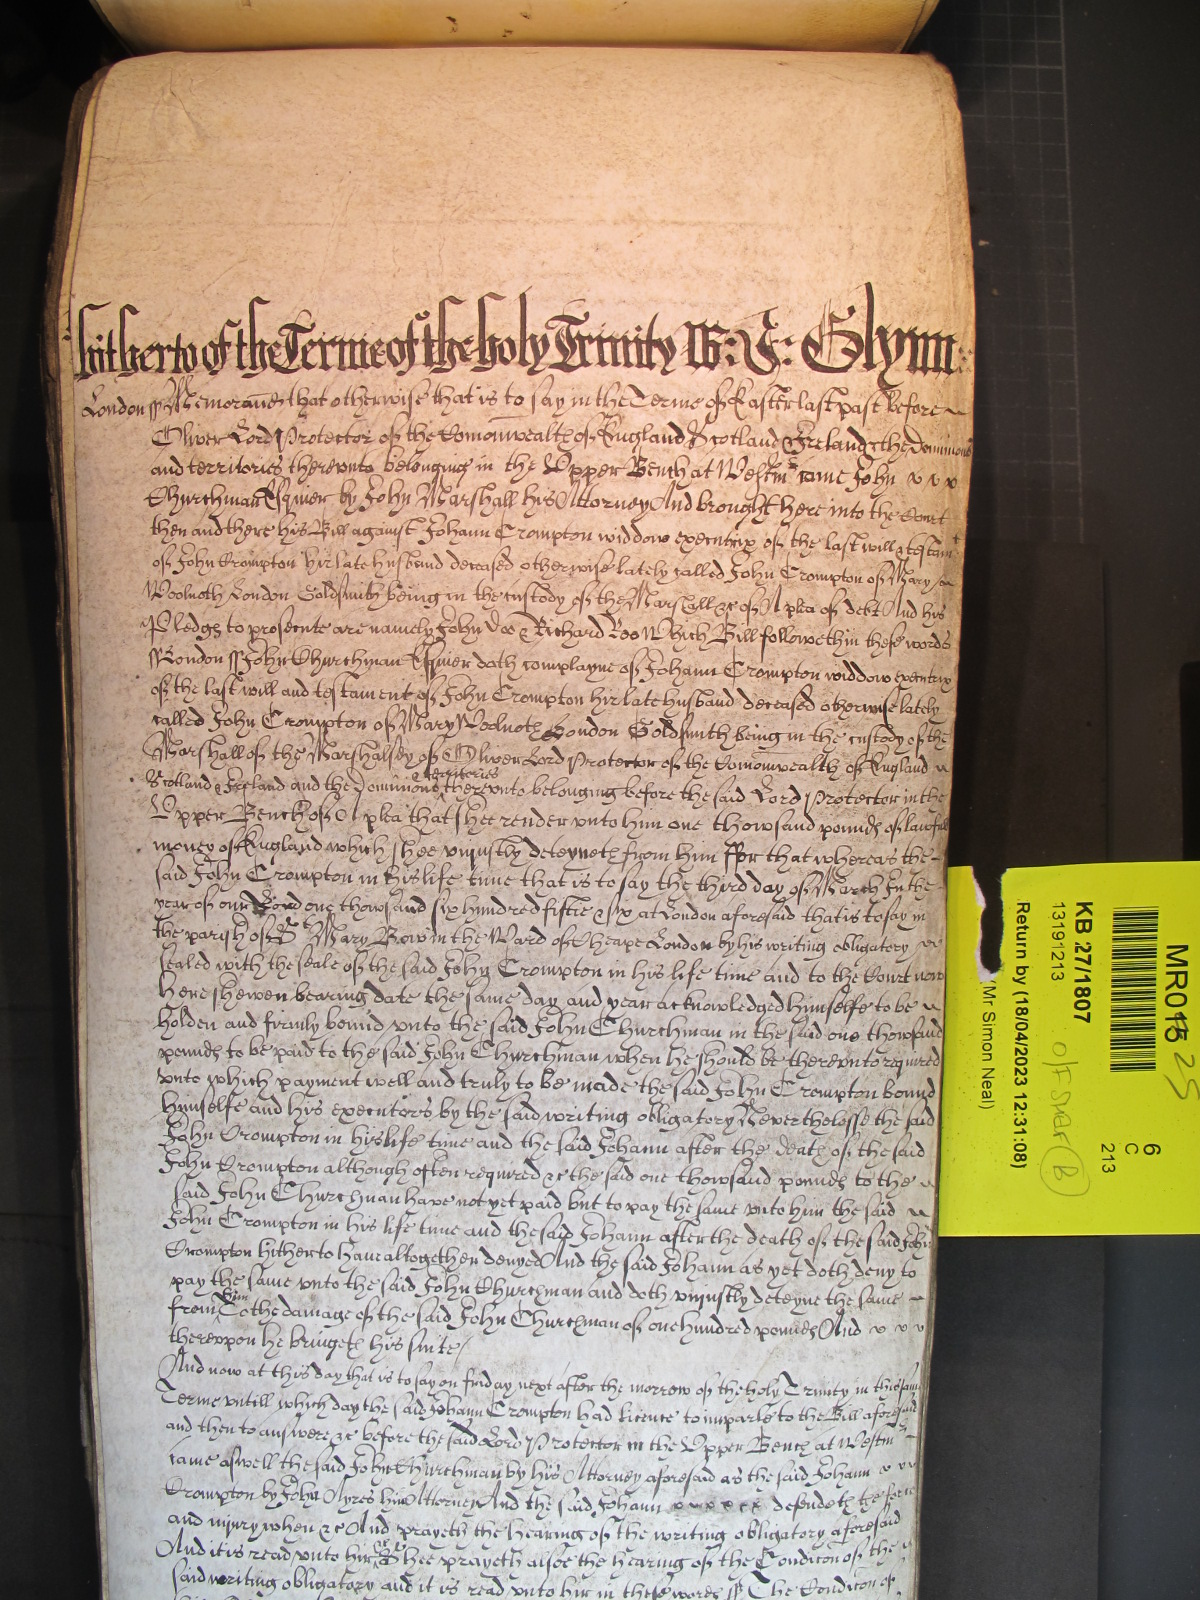 hitherto of the Terme of the holy Trinity W: J: Glynn
London ss Memorand that otherwise that is to say in the Terme of Easter last past before
Oliver Lord Protector of the Comonwealth of England Scotland & Ireland & the dominions
and territories therevnto belonging in the Vpper Bench at Westmr came John
Churchman Esquier by John Marshall his Attorney And brought here into the Court
then and there his Bill against Johann Crompton widdow executrix of the last will & testamt
of John Crompton hir late husband deceased otherwise lately called John Crompton of Mary
Woolnoth London Goldsmith being in the custody of the Marshall &c of A plea of debt And his
Pledges to prosecute are namely John Doo & Richard Roo Which Bill followeth in these words
ss London ss John Churchman Esquier doth complayne of Johann Crompton widdow executrix
of the last will and testament of John Crompton hir late husband deceased otherwise lately
called John Crompton of Mary Woolnoth London Goldsmith being in the custody of the
Marshall of the Marshalsey of Oliver Lord Protector of the Comonwealth of England
Scotland & Ireland and the Dominions & territories therevnto belonging before the said Lord Protector in the
Vpper Bench of A plea that shee render vnto him one thowsand pounds of lawfull
money of England which shee vniustly deteyneth from him ffor that whereas the
said John Crompton in his life time that is to say the third day of March In the
year of our Lord one thowsand six hundred fiftie & six at London aforesaid that is to say in
the parish of St Mary Bow in the Ward of Cheape London by his writing obligatory
sealed with the seale of the said John Crompton in his life time and to the Court now
here shewen bearing date the same day and year acknowledged himselfe to be
holden and firmly bound vnto the said John Churchman in the said one thowsand
pounds to be paid to the said John Churchman when he should be therevnto required
vnto which payment well and truly to be made the said John Crompton bound
himselfe and his executors by the said writing obligatory Neverthelesse the said
John Crompton in his life time and the said Johann after the death of the said
John Crompton although often required &c the said one thowsand pounds to the
said John Churchman have not yet paid but to pay the same vnto him the said
John Crompton in his life time and the said Johann after the death of the said John
Crompton hitherto have altogether denyed And the said Johann as yet doth deny to
pay the same vnto the said John Churchman and doth vniustly deteyne the same
from him To the damage of the said John Churchman of one hundred pounds And
therevpon he bringeth his suite
And now at this day that is to say on friday next after the morrow of the holy Trinity in this same
Terme vntill which day the said Johann Crompton had licence to imparle to the Bill aforesaid
and then to answere &c before the said Lord Protector in the Vpper Bench at Westmr
came aswell the said John Churchman by his Attorney aforesaid as the said Johann
Crompton by John Ayres hir Attorney And the said Johann defendeth the force
and iniury when &c And prayeth the hearing of the writing obligatory aforesaid
And it is read vnto hir &c Shee prayeth alsoe the hearing of the Condicon of the
said writing obligatory and it is read vnto hir in these words ss The Condicon of
MR015 25
6
C
213
KB 27/1807
13191213
Return by (18/04/2023 12:31:08)
(Mr Simon Neal)